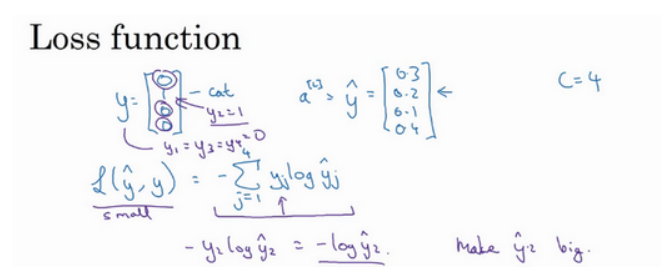 Loss function
y = [0 1 0 0] - cat
y₂=1
y₁ = y₃ = y₄ = 0
a^[L] = ŷ = [0.3 0.2 0.1 0.4] ←
C=4
ℒ(ŷ, y) = - ∑_{j=1}^{4} yⱼ log ŷⱼ
small
- y₂ log ŷ₂ = - log ŷ₂.
Make ŷ₂ big.